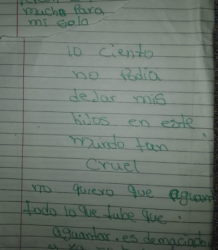 mucha para
mi sola
lo ciento
no podia
dejar mis
hijos en este
mundo tan
cruel
no quiero que aguan
todo lo que tube que
aguantar, es demaciado